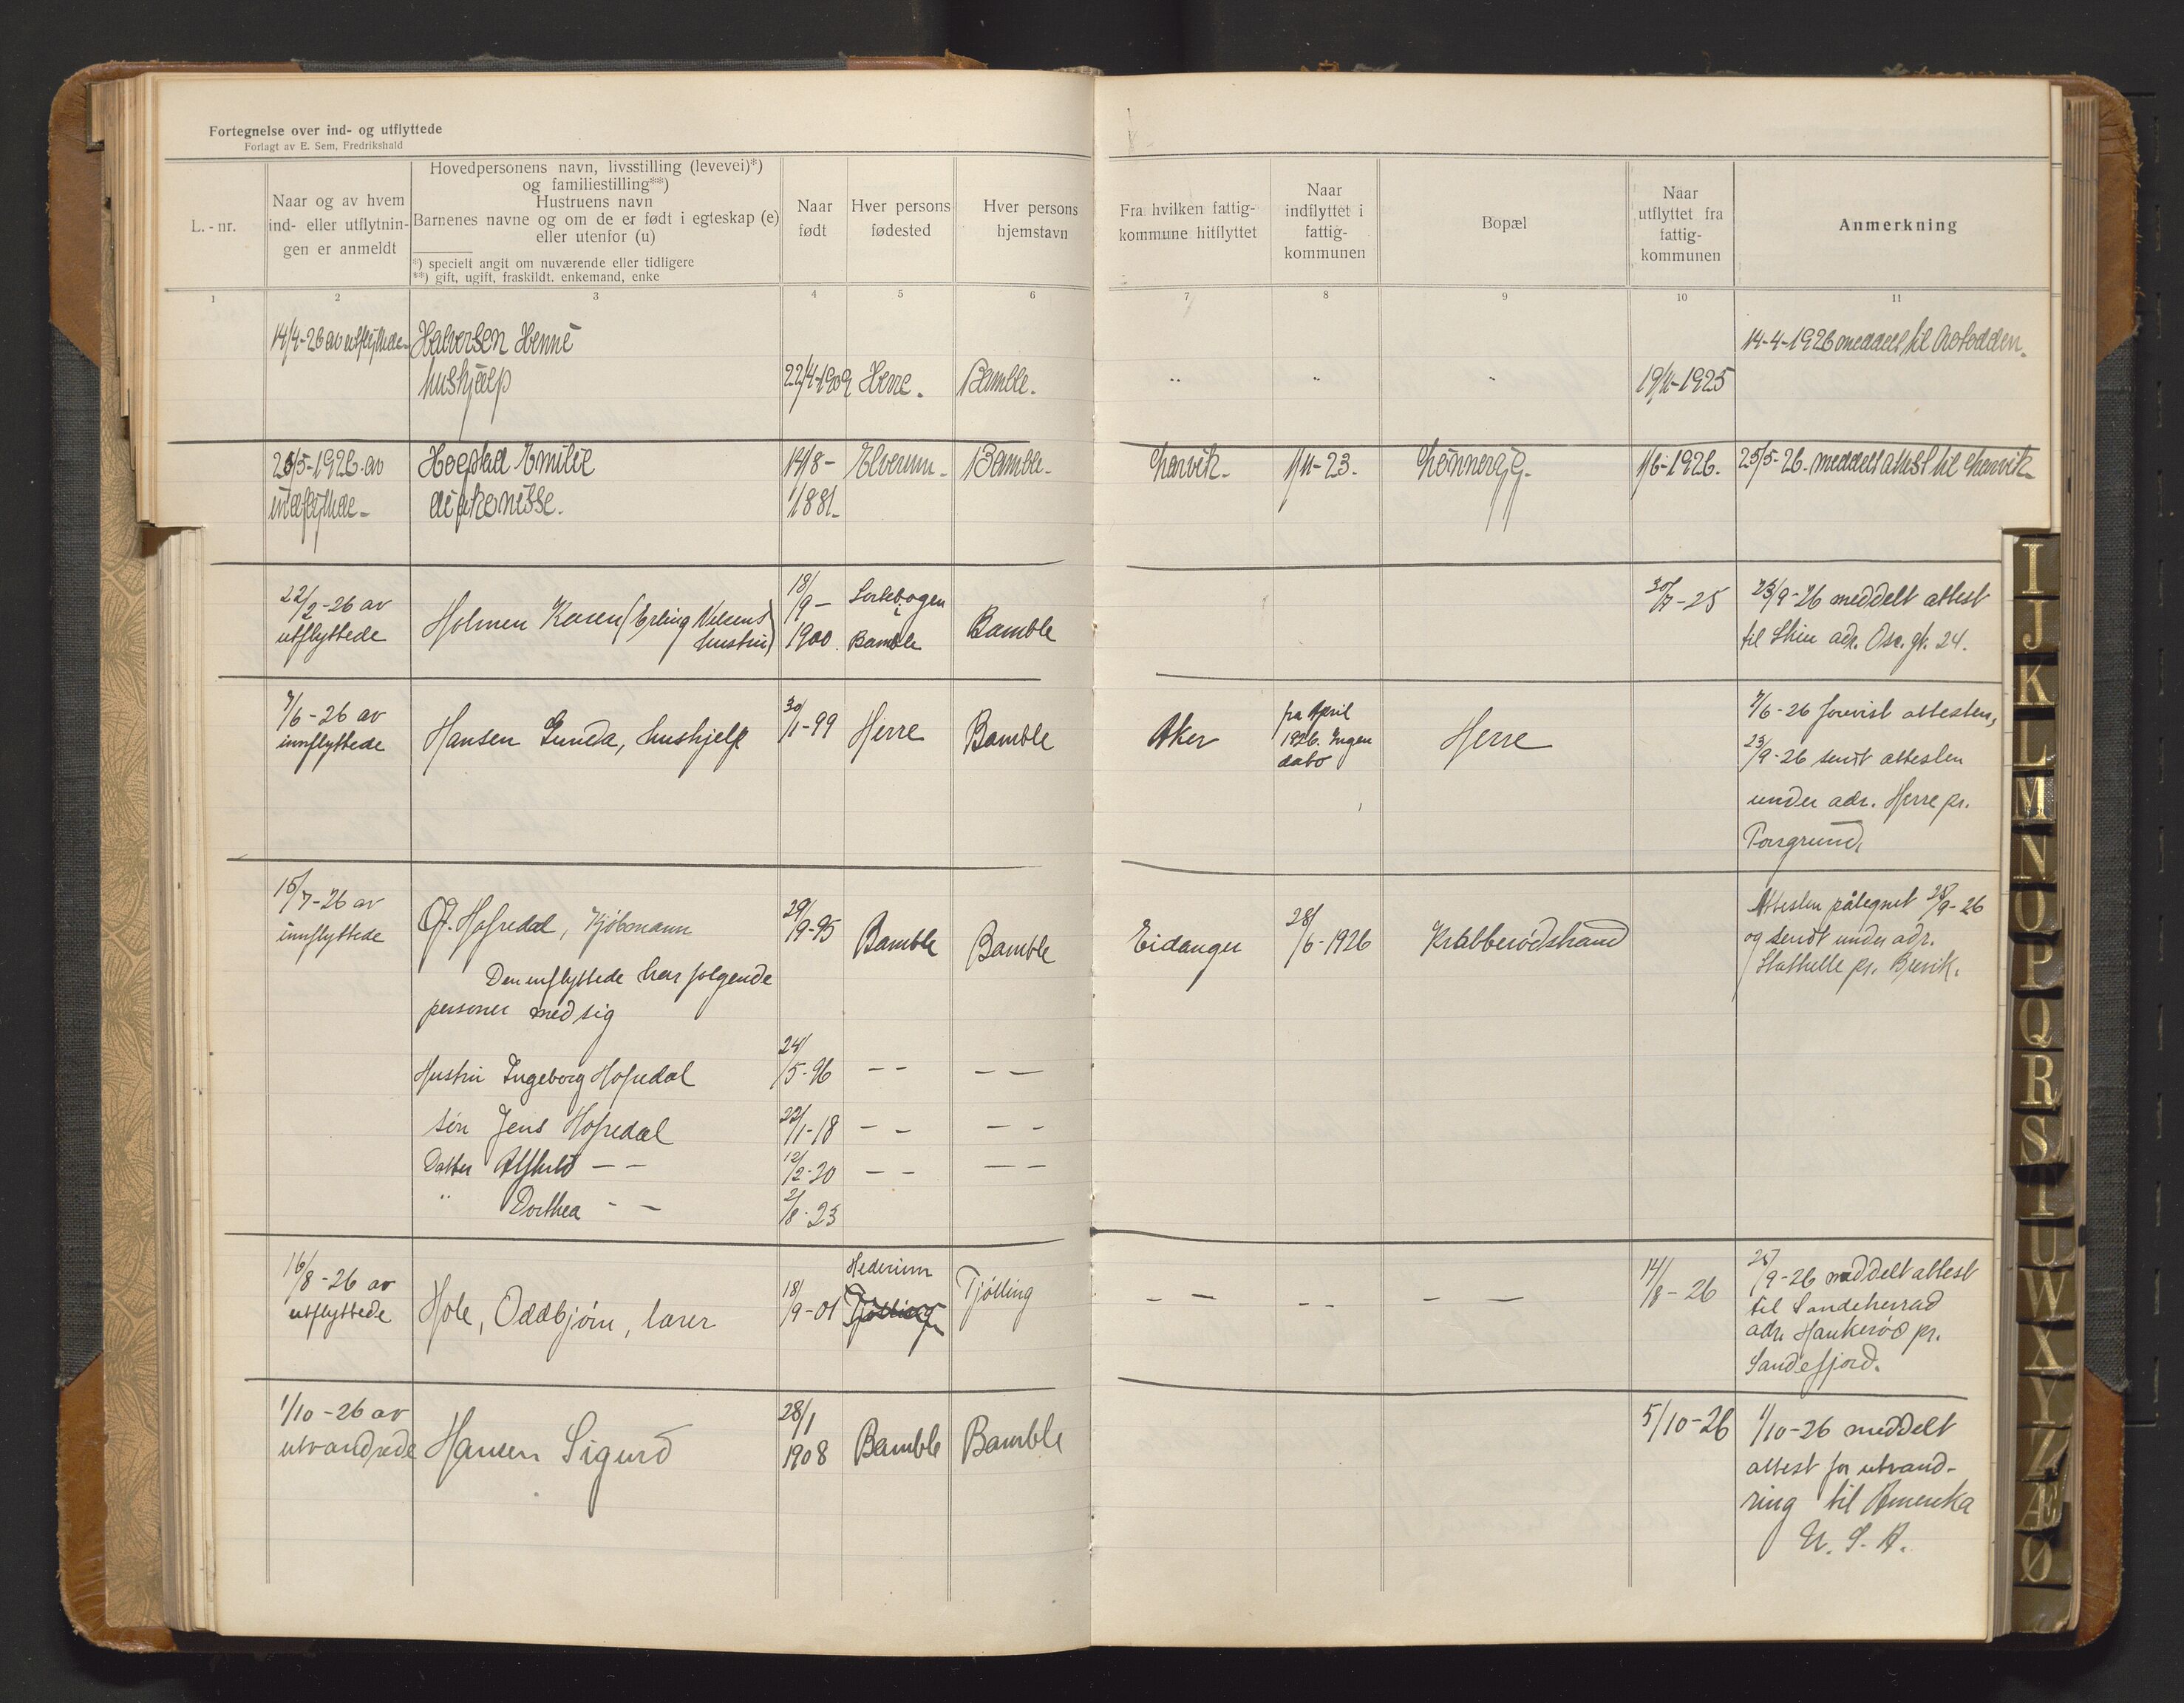 Fortegnelse over ind- og utflyttede
Forlagt av E. Sem, Fredrikshald
L. - nr.
Naar og av hvem
ind- eller utflytnin-
gen er anmeldt
Hovedpersonens navn, livsstilling (levevei)*)
og familiestilling**)
Hustruens navn
Barnenes navne og om de er født i egteskap (e)
eller utenfor (u)
*) specielt angit om nuværende eller tidligere
**) gift, ugift, fraskildt. enkemand, enke
Naar
født
Hver persons
fødested
Hver persons
hjemstavn
Fra hvilken fattig-
kommune hitflyttet
Naar
indflyttet i
fattig-
kommunen
Bopæl
Naar
utflyttet fra
fattig-
kommunen
Anmerkning
1 2 3 4 5 6 7 8 9 10 11
14/4-26 av utflyttede Halversen 14-4-1926 meddelt til Notodden.
hushjælp 22/4-1909 Herre. Bamble. " " " 19/11-1925
25/5-1926 av Emilie 14/8- Elverum. Bamble. Larvik. 1/11-23. 1/6-1926. 25/5-26. meddelt attest til Larvik
diakonisse. 1881.
22/2-26 av
utflyttede
Holmen Karen (Erling
hustru)
18/9-
1900.
i
Bamble
Bamble
30/7-25
23/9-26 meddelt attest
til Skien adr. gt. 24.
7/6-26 av
innflyttede
Hansen Gunda, hushjelp
30/1-99
Herre
Bamble
Aker
fra April
1926. Ingen
dato
Herre
7/6-26 forevist attesten,
23/9-26 sendt attesten
under adr. Herre pr.
Porsgrund.
15/7-26 av
innflyttede
Hafredal, Kjøbmann
29/9-95
Bamble
Bamble
Eidanger
28/6-1926
Krabberødstrand
Attesten påtegnet 25/9-26
og sendt under adr.
Stathelle pr. Brevik.
Den innflyttede har følgende
personer med sig
Hustru Ingeborg Hafredal 24/5-96 - - - -
søn Jens Hafredal 22/1-18 - - - -
Datter Alfhild - - 12/2-20 - - - -
" Dorthea - - 2/8-23
16/8-26 av
utflyttede
Hole, Oddbjørn, lærer
18/9-01
Hederum
Tjølling
Tjølling
- - - - - -
14/8-26
25/9-26 meddelt attest
til Sandeherrad
adr. Haukerød pr.
Sandefjord.
1/10-26 av
utvandrede
Hansen Sigurd
28/1
1908
Bamble
Bamble
5/10-26
1/10-26 meddelt
attest for utvand-
ring til Amerika
U. S. A.
I
J
K
L
M
N
O
P
Q
R
S
T
U
W
X
Y
Z
Æ
Ø